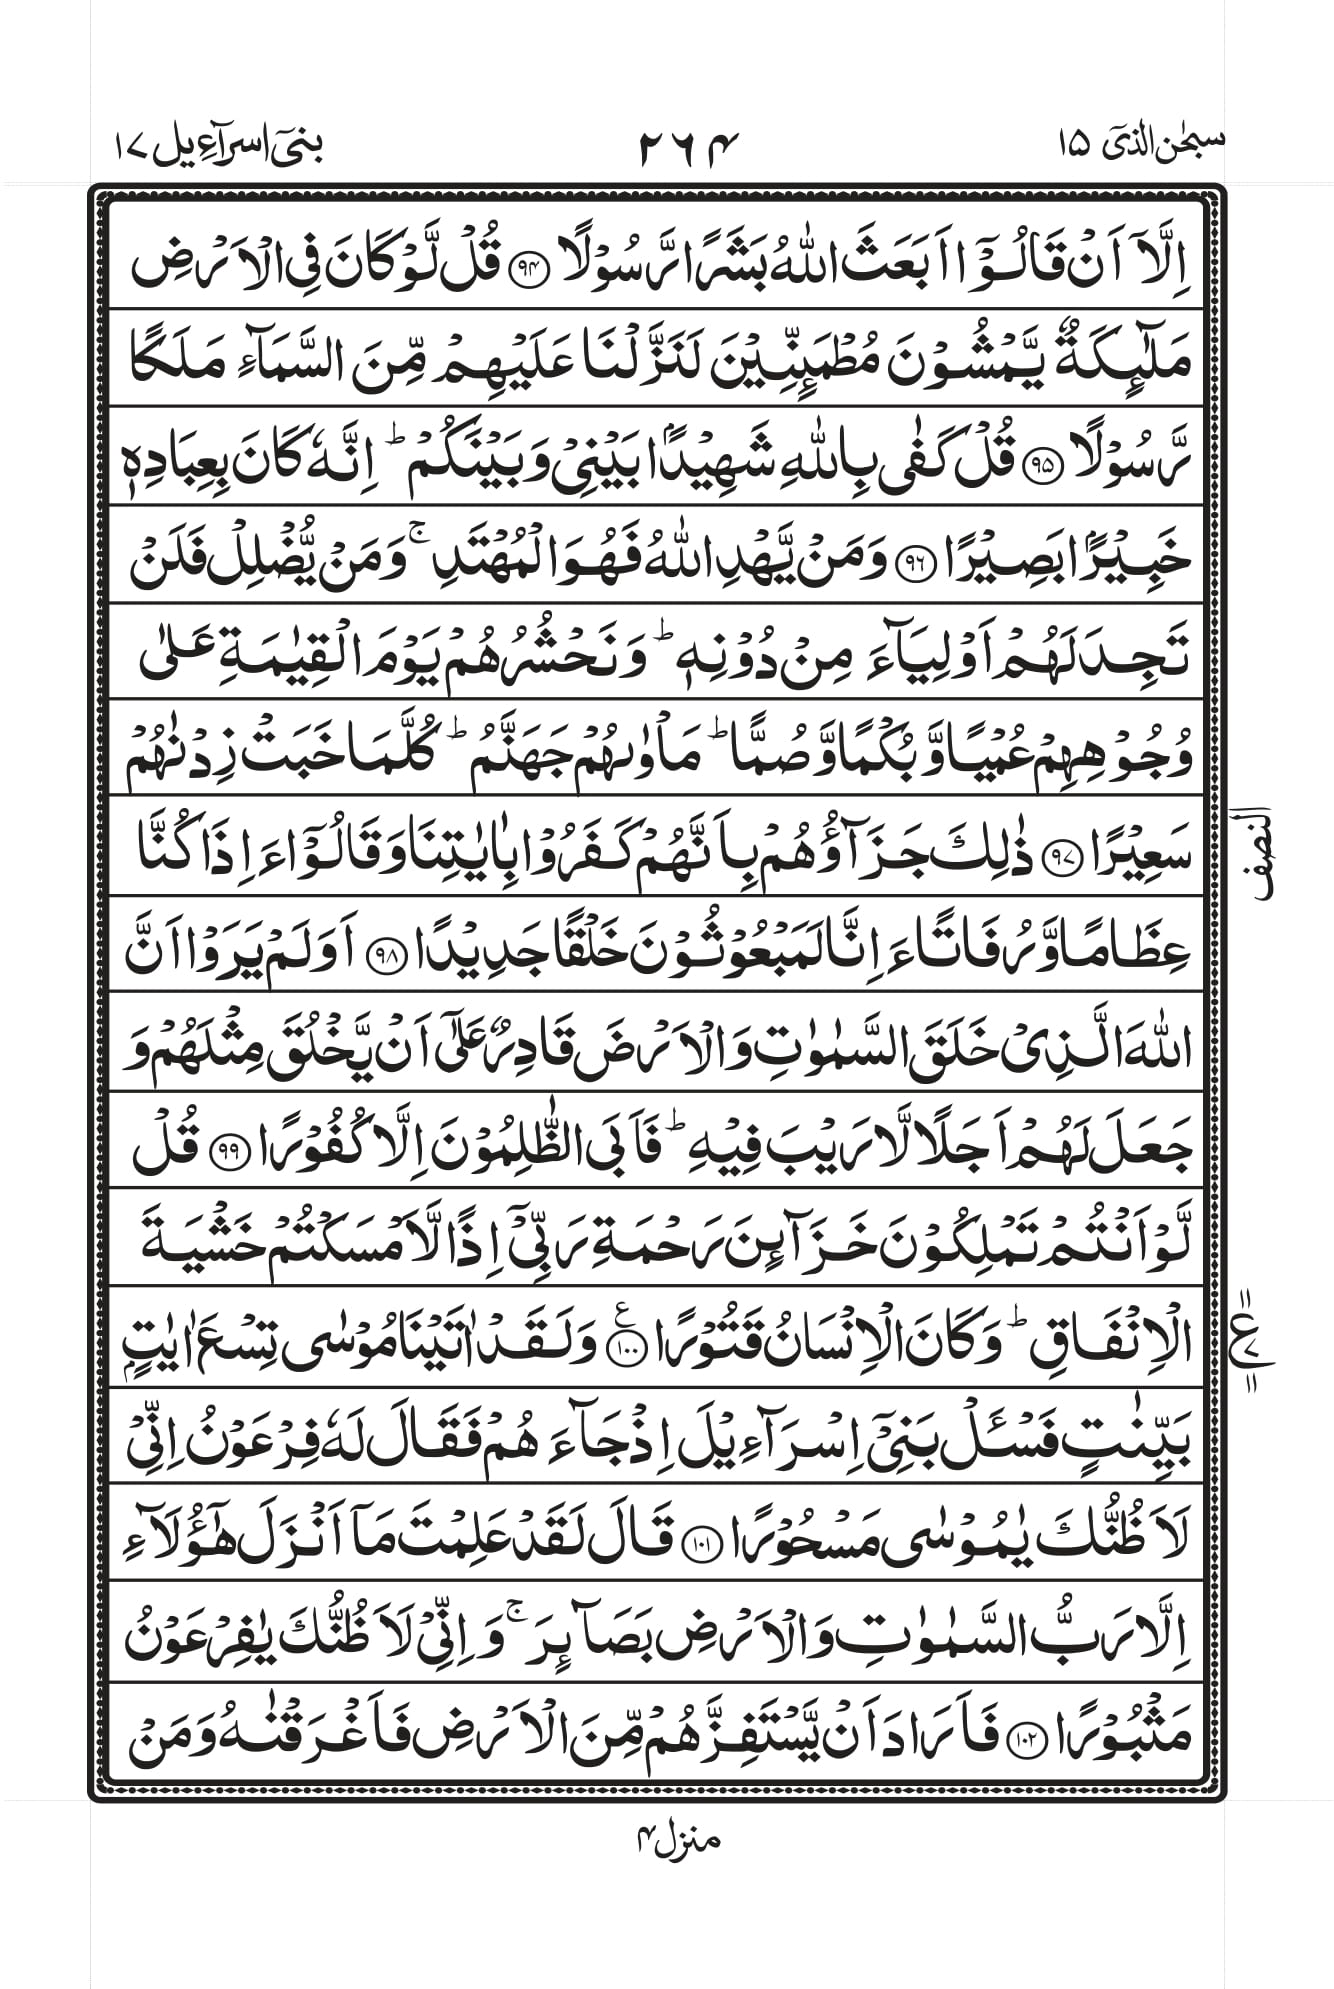 سبحٰن الذیٓ ۱۵
۲۶۴
بنیٓ اسرآءیل ۱۷
اِلَّاۤ اَنۡ قَالُوۡۤا اَبَعَثَ اللّٰهُ بَشَرًا رَّسُوۡلًا ﴿۹۴﴾ قُلۡ لَّوۡ كَانَ فِی الۡاَرۡضِ
مَلٰٓئِكَةٌ یَّمۡشُوۡنَ مُطۡمَئِنِّیۡنَ لَنَزَّلۡنَا عَلَیۡهِمۡ مِّنَ السَّمَآءِ مَلَكًا
رَّسُوۡلًا ﴿۹۵﴾ قُلۡ كَفٰی بِاللّٰهِ شَهِیۡدًۢا بَیۡنِیۡ وَبَیۡنَكُمۡ ؕ اِنَّهٗ كَانَ بِعِبَادِهٖ
خَبِیۡرًۢا بَصِیۡرًا ﴿۹۶﴾ وَمَنۡ یَّهۡدِ اللّٰهُ فَهُوَ الۡمُهۡتَدِ ۚ وَمَنۡ یُّضۡلِلۡ فَلَنۡ
تَجِدَ لَهُمۡ اَوۡلِیَآءَ مِنۡ دُوۡنِهٖ ؕ وَنَحۡشُرُهُمۡ یَوۡمَ الۡقِیٰمَةِ عَلٰی
وُجُوۡهِهِمۡ عُمۡیًا وَّبُكۡمًا وَّصُمًّا ؕ مَاۡوٰىهُمۡ جَهَنَّمُ ؕ كُلَّمَا خَبَتۡ زِدۡنٰهُمۡ
سَعِیۡرًا ﴿۹۷﴾ ذٰلِكَ جَزَآؤُهُمۡ بِاَنَّهُمۡ كَفَرُوۡا بِاٰیٰتِنَا وَقَالُوۡۤا ءَاِذَا كُنَّا
النصف
عِظَامًا وَّرُفَاتًا ءَاِنَّا لَمَبۡعُوۡثُوۡنَ خَلۡقًا جَدِیۡدًا ﴿۹۸﴾ اَوَلَمۡ یَرَوۡا اَنَّ
اللّٰهَ الَّذِیۡ خَلَقَ السَّمٰوٰتِ وَالۡاَرۡضَ قَادِرٌ عَلٰۤی اَنۡ یَّخۡلُقَ مِثۡلَهُمۡ وَ
جَعَلَ لَهُمۡ اَجَلًا لَّا رَیۡبَ فِیۡهِ ؕ فَاَبَی الظّٰلِمُوۡنَ اِلَّا كُفُوۡرًا ﴿۹۹﴾ قُلۡ
لَّوۡ اَنۡتُمۡ تَمۡلِكُوۡنَ خَزَآئِنَ رَحۡمَةِ رَبِّیۡۤ اِذًا لَّاَمۡسَكۡتُمۡ خَشۡیَةَ
الۡاِنۡفَاقِ ؕ وَكَانَ الۡاِنۡسَانُ قَتُوۡرًا ﴿۱۰۰﴾ ع وَلَقَدۡ اٰتَیۡنَا مُوۡسٰی تِسۡعَ اٰیٰتٍۭ
ع
بَیِّنٰتٍ فَسۡـَٔلۡ بَنِیۡۤ اِسۡرَآءِیۡلَ اِذۡ جَآءَهُمۡ فَقَالَ لَهٗ فِرۡعَوۡنُ اِنِّیۡ
لَاَظُنُّكَ یٰمُوۡسٰی مَسۡحُوۡرًا ﴿۱۰۱﴾ قَالَ لَقَدۡ عَلِمۡتَ مَاۤ اَنۡزَلَ هٰۤؤُلَآءِ
اِلَّا رَبُّ السَّمٰوٰتِ وَالۡاَرۡضِ بَصَآئِرَ ۚ وَاِنِّیۡ لَاَظُنُّكَ یٰفِرۡعَوۡنُ
مَثۡبُوۡرًا ﴿۱۰۲﴾ فَاَرَادَ اَنۡ یَّسۡتَفِزَّهُمۡ مِّنَ الۡاَرۡضِ فَاَغۡرَقۡنٰهُ وَمَنۡ
منزل۴